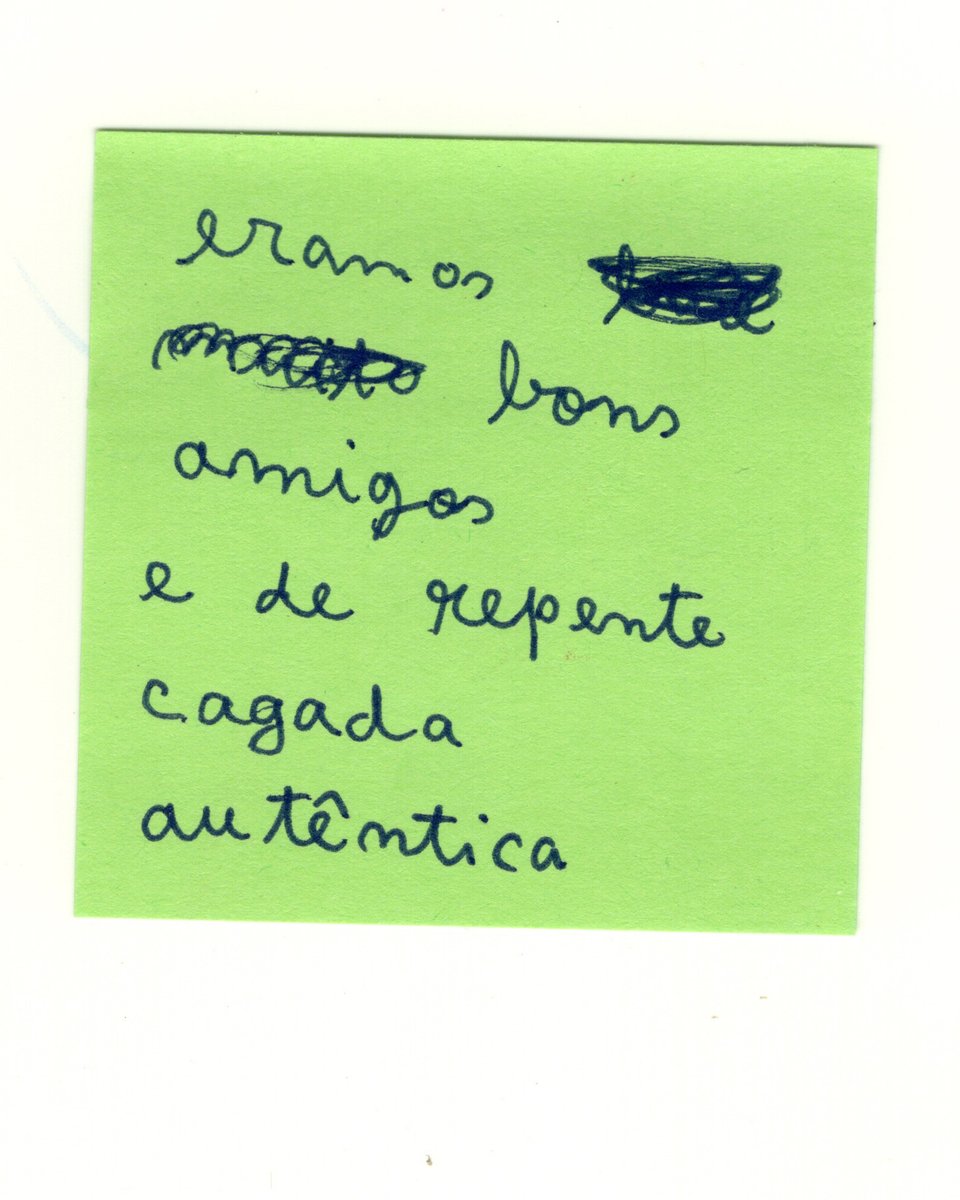 eramos
bons
amigos
e de repente
cagada
autêntica